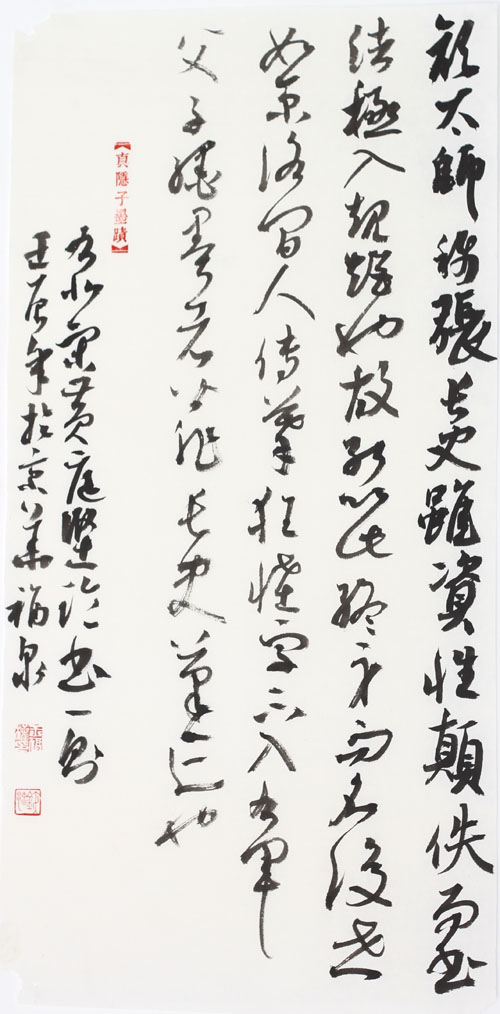 顏太師稱張長史雖資性顛佚而書
法極入規矩也故能以此終身而名後世
如京洛間人傳摹狂怪字不入右軍
父子繩墨者皆非長史筆迹也
【真隱子墨蹟】
右北宋黃庭堅論書一則
壬辰年於京華福泉